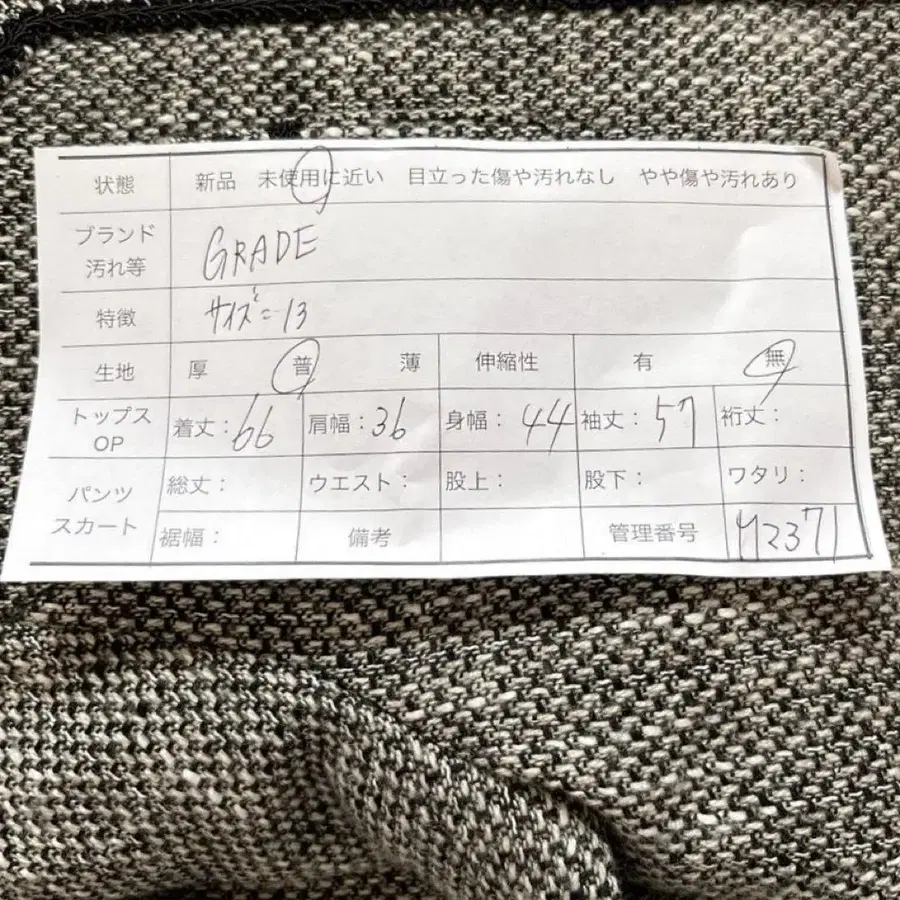 状態 新品 未使用に近い 目立った傷や汚れなし やや傷や汚れあり
ブランド
汚れ等
GRADE
特徴 サイズ=13
生地 厚 普 薄 伸縮性 有 無
トップス
OP
着丈：66 肩幅：36 身幅：44 袖丈：57 裄丈：
パンツ
スカート
総丈： ウエスト： 股上： 股下： ワタリ：
裾幅： 備考 管理番号